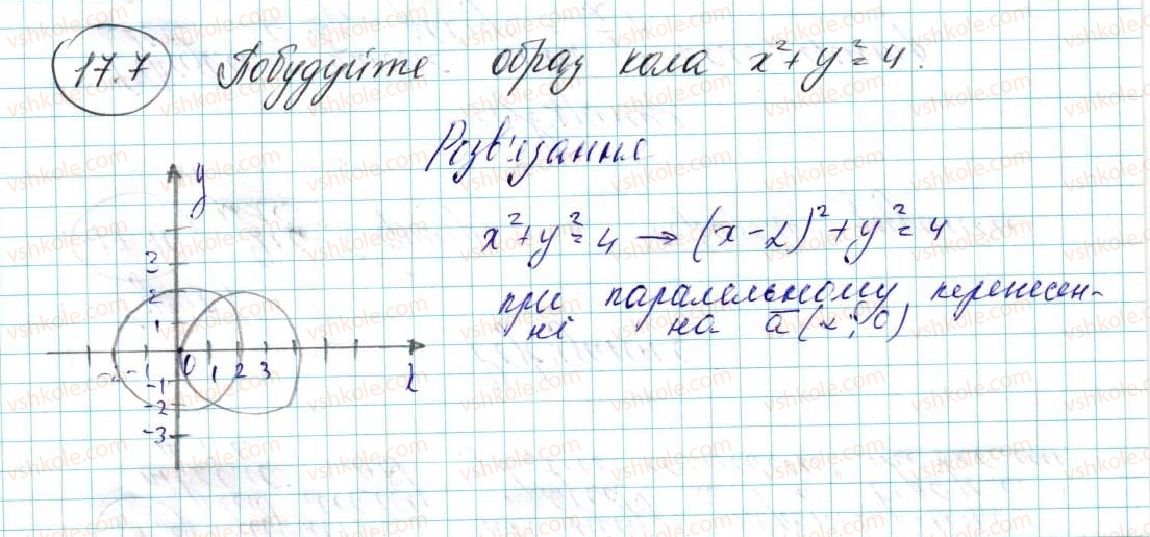 17.7 Побудуйте образ кола x²+y²=4.
Розв'язання
x²+y²=4 → (x-2)²+y²=4
при паралельному перенесен-
ні на a̅(2;0)
y
3
2
1
-2 -1 0 1 2 3
-1
-2
-3
vshkole.com